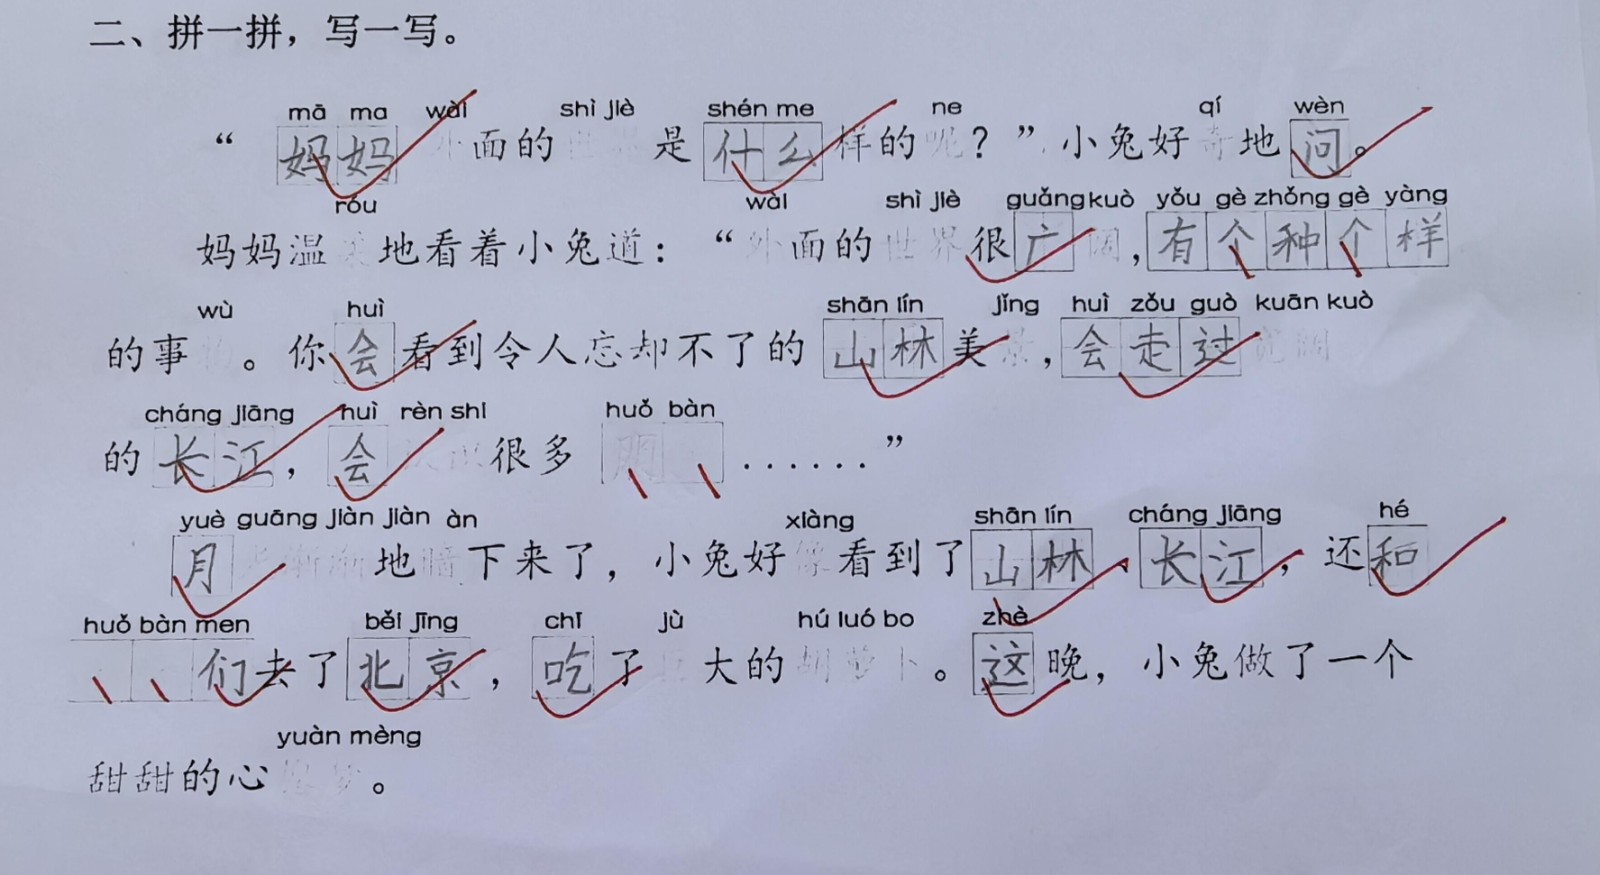 二、拼一拼，写一写。
mā ma wài shì jiè shén me ne qí wèn
“妈妈外面的世界是什么样的呢？”小兔好奇地问。
róu wài shì jiè guǎng kuò yǒu gè zhǒng gè yàng
妈妈温柔地看着小兔道：“外面的世界很广阔，有个种个样
wù huì shān lín jǐng huì zǒu guò kuān kuò
的事物。你会看到令人忘却不了的山林美景，会走过宽阔
cháng jiāng huì rèn shi huǒ bàn
的长江，会认识很多......”
yuè guāng jiàn jiàn àn xiàng shān lín cháng jiāng hé
月光渐渐地暗下来了，小兔好像看到了山林、长江，还和
huǒ bàn men běi jīng chī jù hú luó bo zhè
们去了北京，吃了巨大的胡萝卜。这晚，小兔做了一个
yuàn mèng
甜甜的心愿梦。